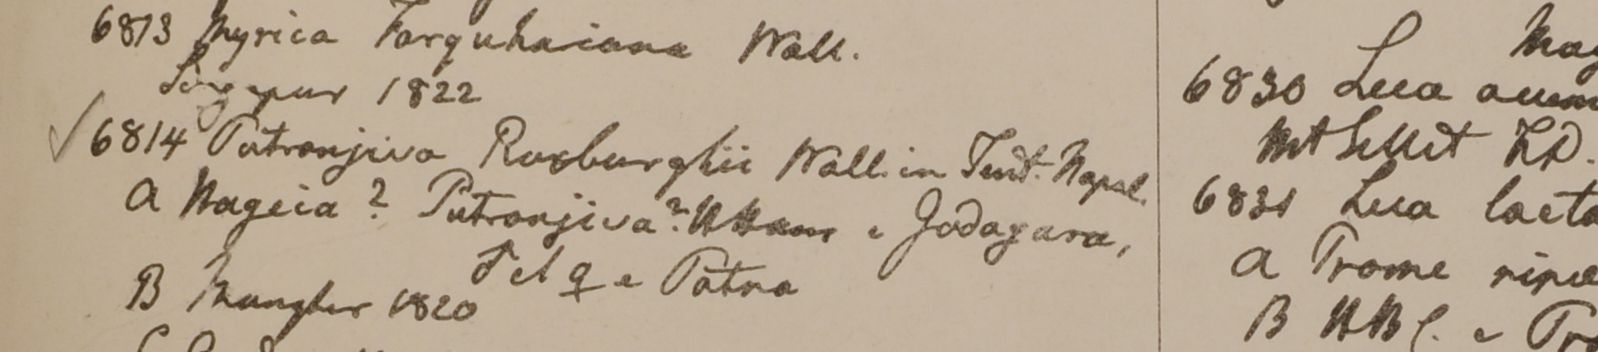 6813 Myrica Farquhariana Wall.
Singapur 1822
✓ 6814 Putranjiva Roxburghii Wall. in Tent. Napal.
a Nageia? Putranjiva? H Ham e Godagara,
♂ et ♀ e Patna
B Mungher 1820
6830 Leea acum
Mt Sillet FD.
6831 Leea laeta
a Prome ripae
B HBC. e